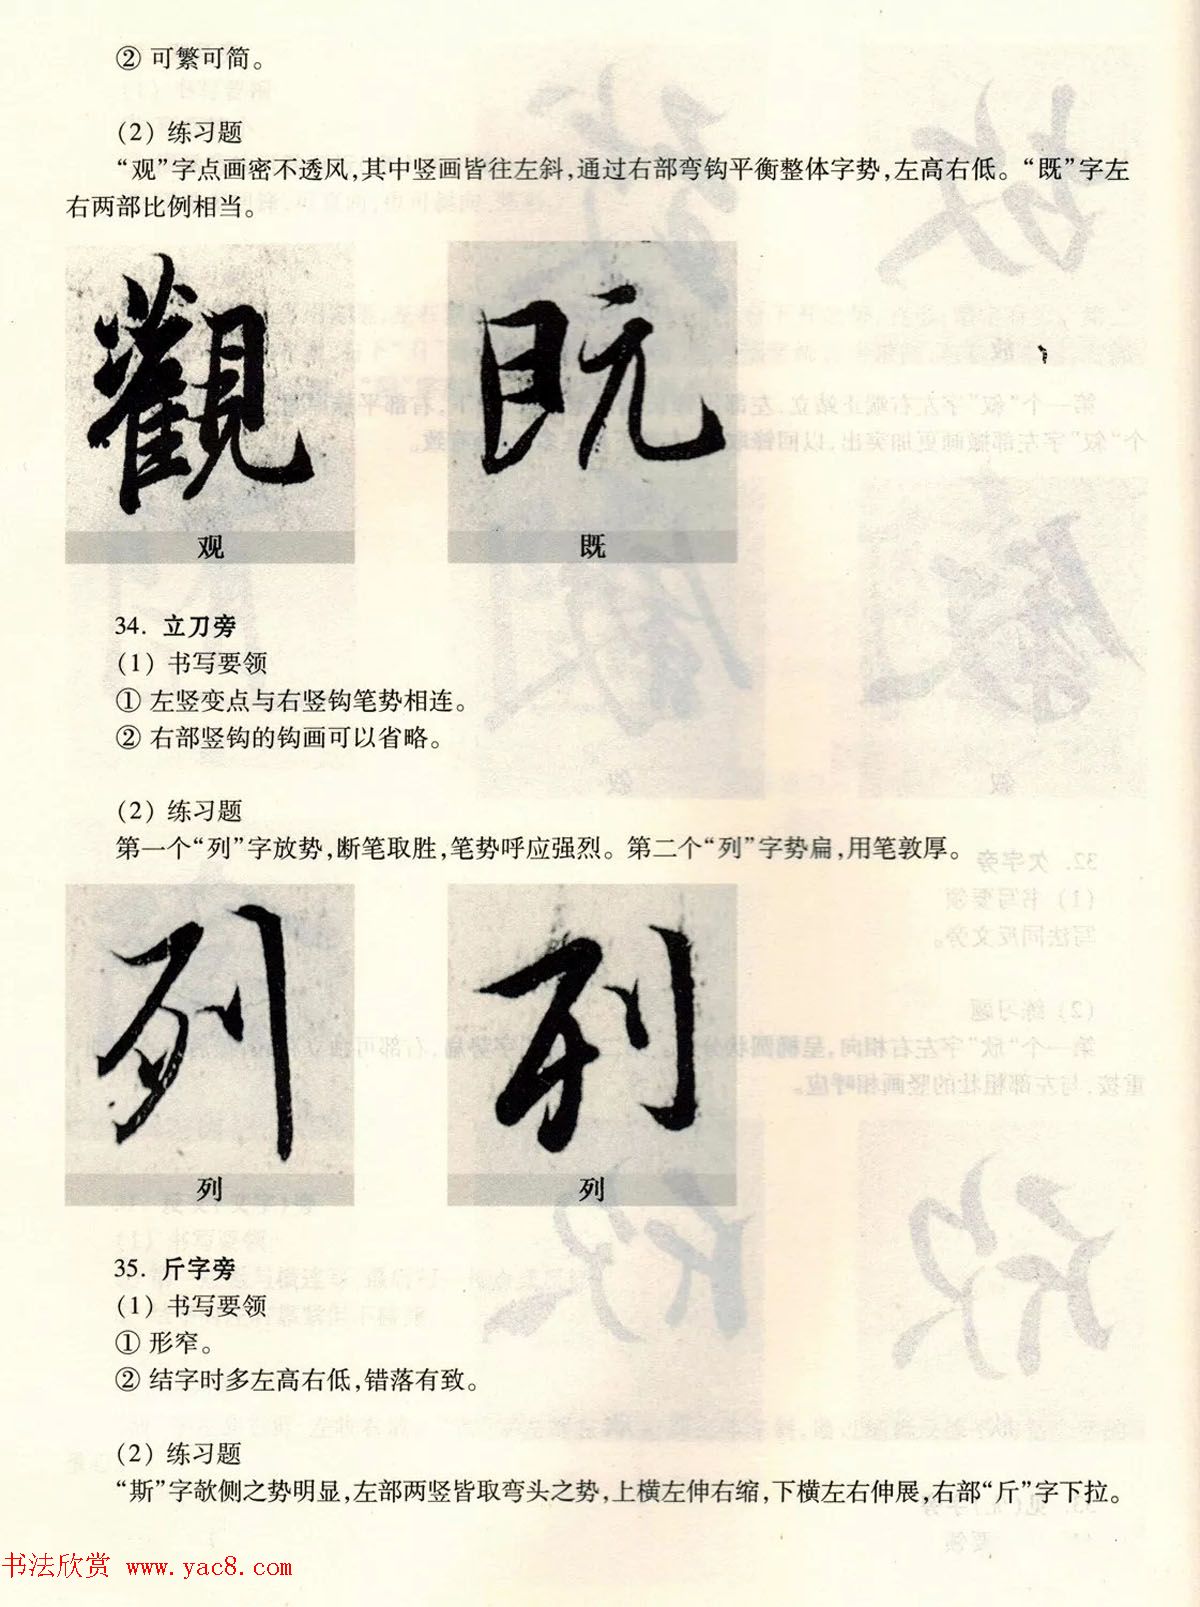 ② 可繁可简。
(2) 练习题
“观”字点画密不透风,其中竖画皆往左斜,通过右部弯钩平衡整体字势,左高右低。“既”字左
右两部比例相当。
觀 既
观 既
34. 立刀旁
(1) 书写要领
① 左竖变点与右竖钩笔势相连。
② 右部竖钩的钩画可以省略。
(2) 练习题
第一个“列”字放势,断笔取胜,笔势呼应强烈。第二个“列”字势扁,用笔敦厚。
列 列
列 列
35. 斤字旁
(1) 书写要领
① 形窄。
② 结字时多左高右低,错落有致。
(2) 练习题
“斯”字欹侧之势明显,左部两竖皆取弯头之势,上横左伸右缩,下横左右伸展,右部“斤”字下拉。
书法欣赏 www.yac8.com